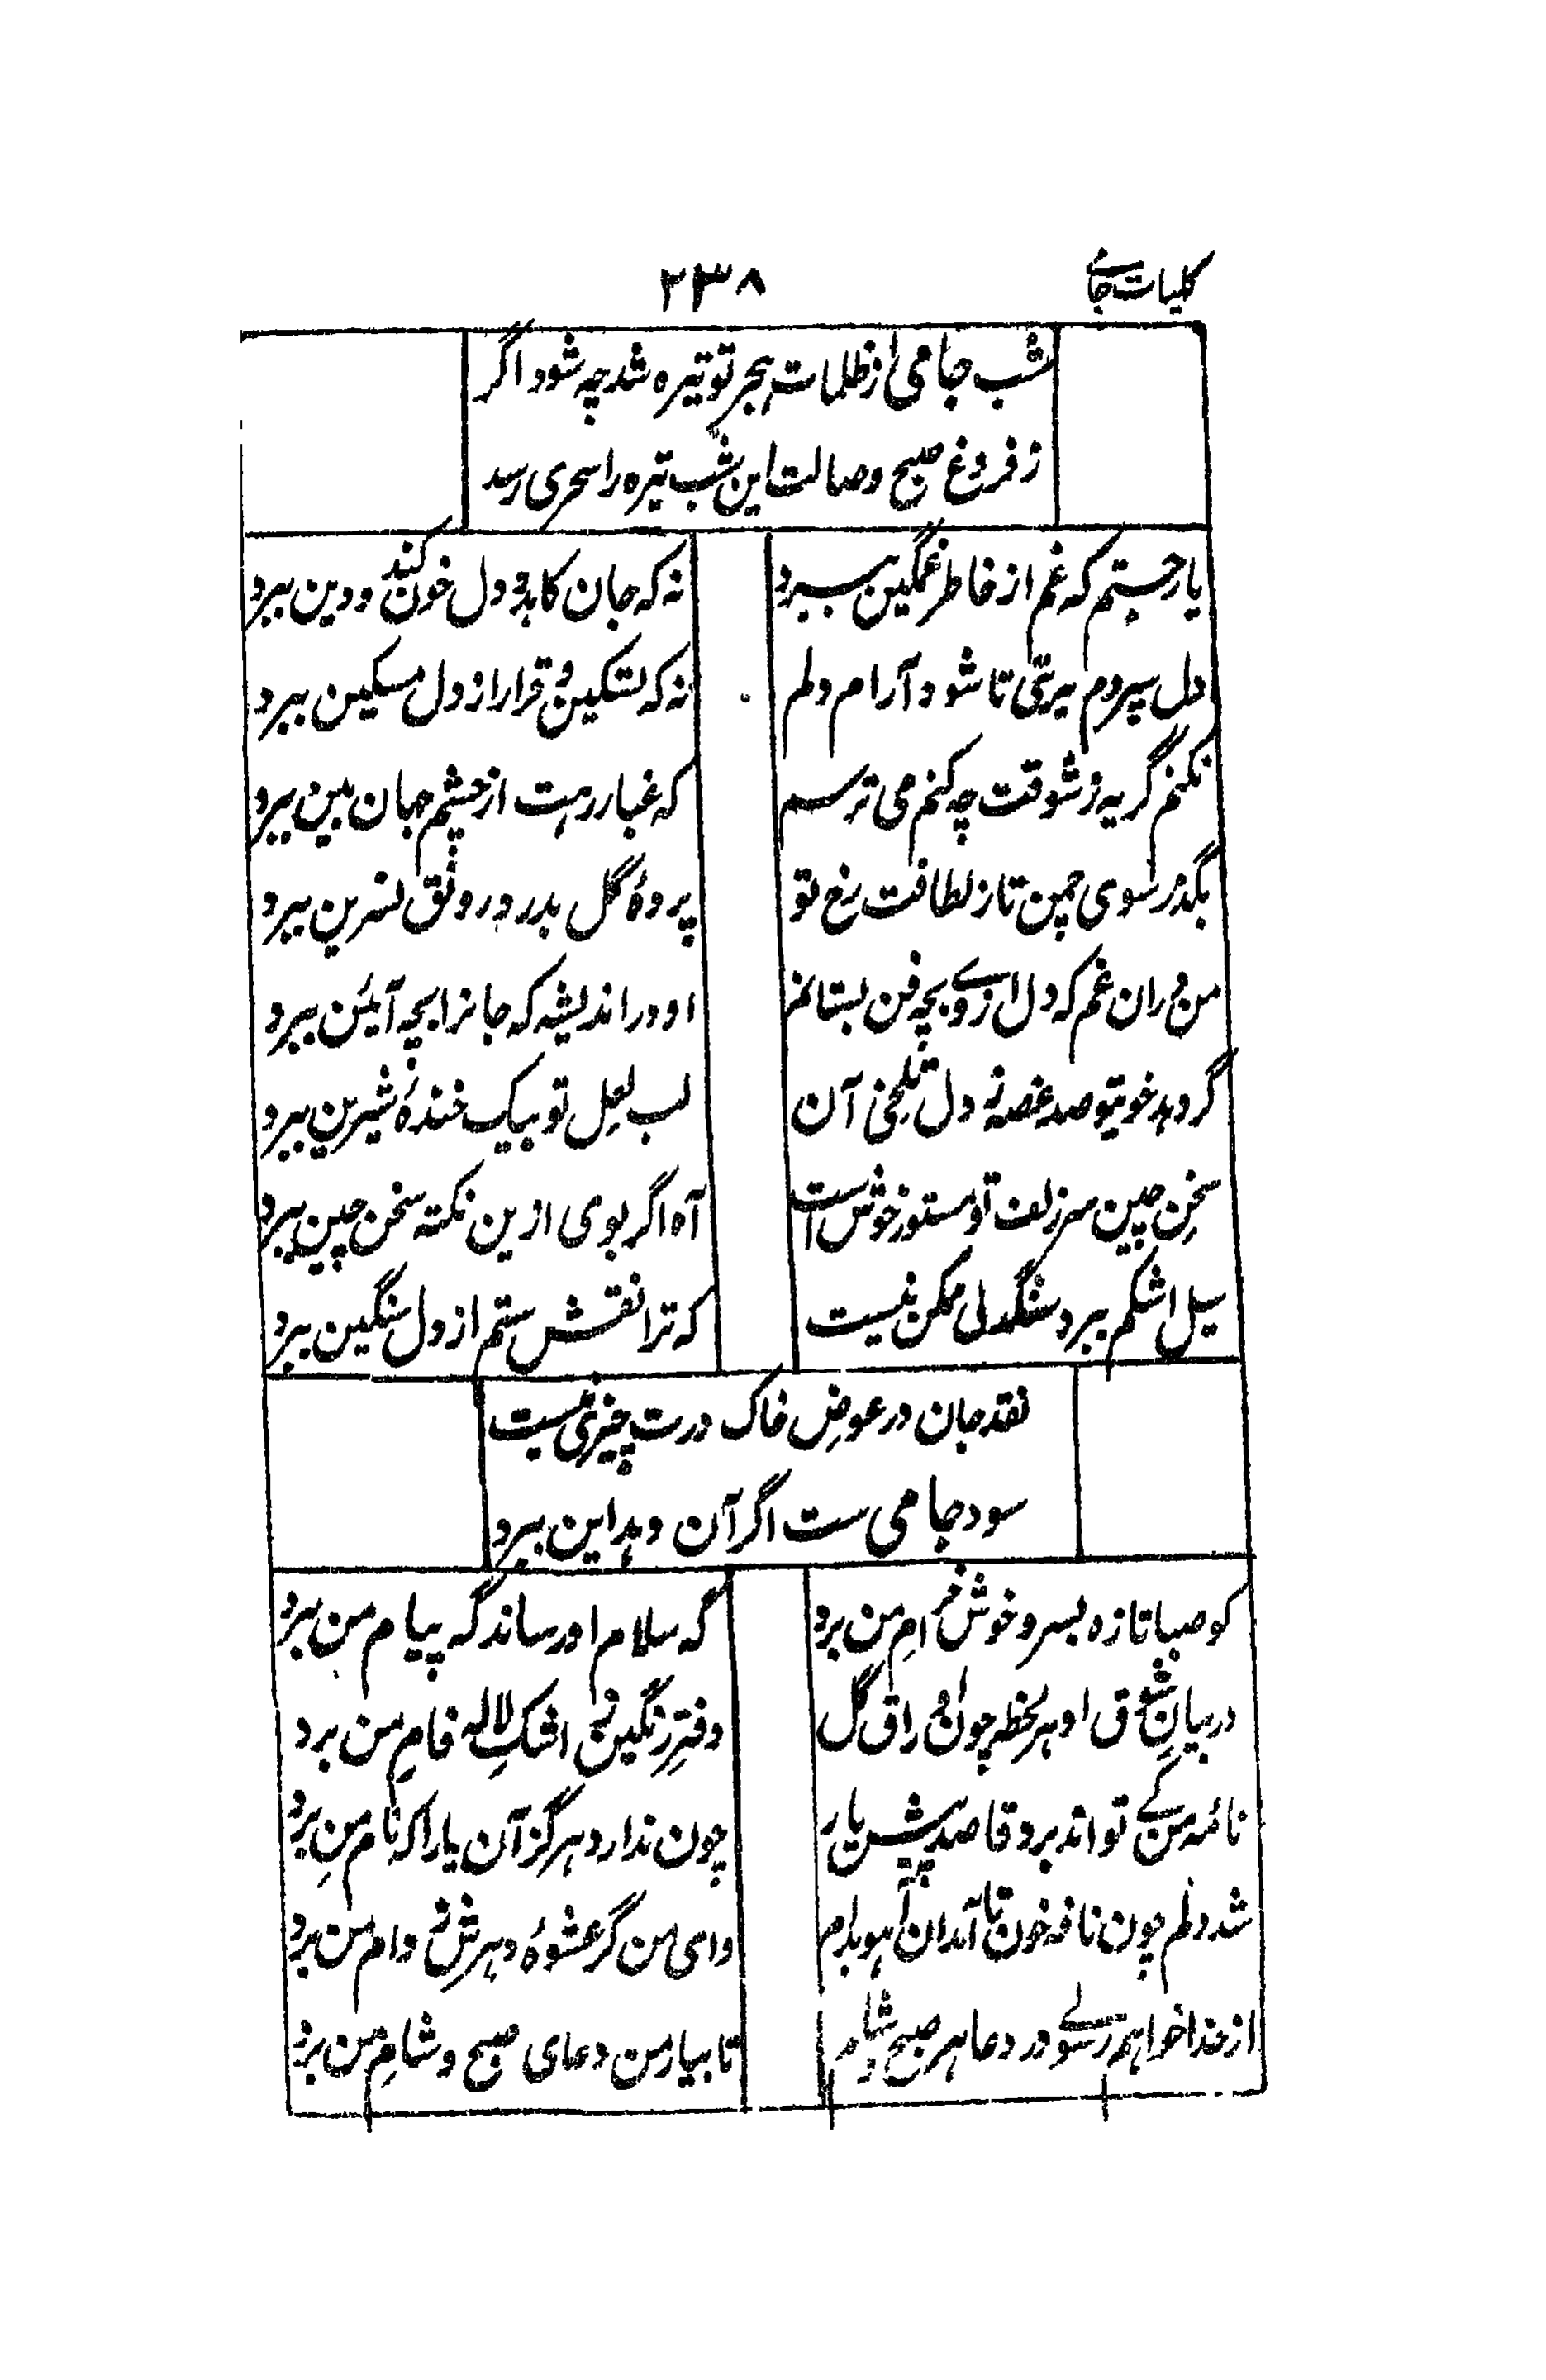 کلیات جامے
۲۳۸
شب جامی از ظلمات ہجر تو تیرہ شد چہ شود اگر
ز فروغ صبح وصالت این شب تیرہ را سحری رسد
یار جستم کہ غم از خاطر غمگین ببرد
نہ کہ جان کاہد و دل خون کند و دین ببرد
دل سپردم ببتی تا شود آرام دلم
نہ کہ تسکین و قرار از دل مسکین ببرد
نکنم گریہ ز شوقت چہ کنم می ترسم
کہ غبار رہت از چشم جہان بین ببرد
بگذر سوی چمن تا ز لطافت رخ تو
پردۂ گل بدرد رونق نسرین ببرد
من در ان غم کہ دل از وے بچہ فن بستانم
او در اندیشہ کہ جانرا بچہ آئین ببرد
گر دہد خوی تو صد غصہ ز دل تلخی آن
لب لعل تو بیک خندۂ شیرین ببرد
سخن چین سر زلف تو مستور خوش است
آہ اگر بوی ازین نکتہ سخن چین ببرد
سیل اشکم ببرد سنگ ولی ممکن نیست
کہ ترا نقش ستم از دل سنگین ببرد
نقد جان در عوض خاک درت چیزی نیست
سود جامی ست اگر آن دہد این ببرد
کو صبا تا زہ بسرو خوش خرام من برد
گہ سلام او رساند گہ پیام من برد
در بیان شوق او ہر لحظہ چون اوراق گل
دفتر رنگین ز اشک لالہ فام من برد
نامۂ من کے تواند برد قاصد پیش یار
چون ندارد ہرگز آن یارا کہ نام من برد
شد دلم چون نافہ خون تا آمد آن آہو بدام
وای من گر عشوۂ دہرش ز دام من برد
از خدا خواہم رسولے در دعا ہر صبح و شام
تا بیار من دعای صبح و شام من برد